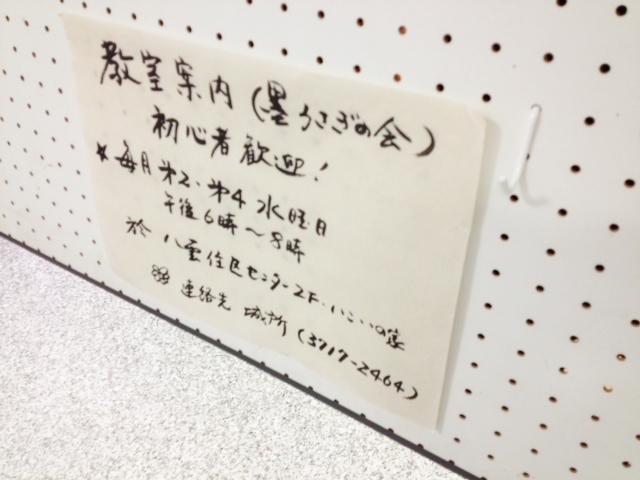 教室案内(墨うさぎの会)
初心者歓迎!
* 毎月 第2、第4 水曜日
午後6時〜8時
於 八雲住区センター2F.いこいの家
連絡先 城所 (3717-2464)